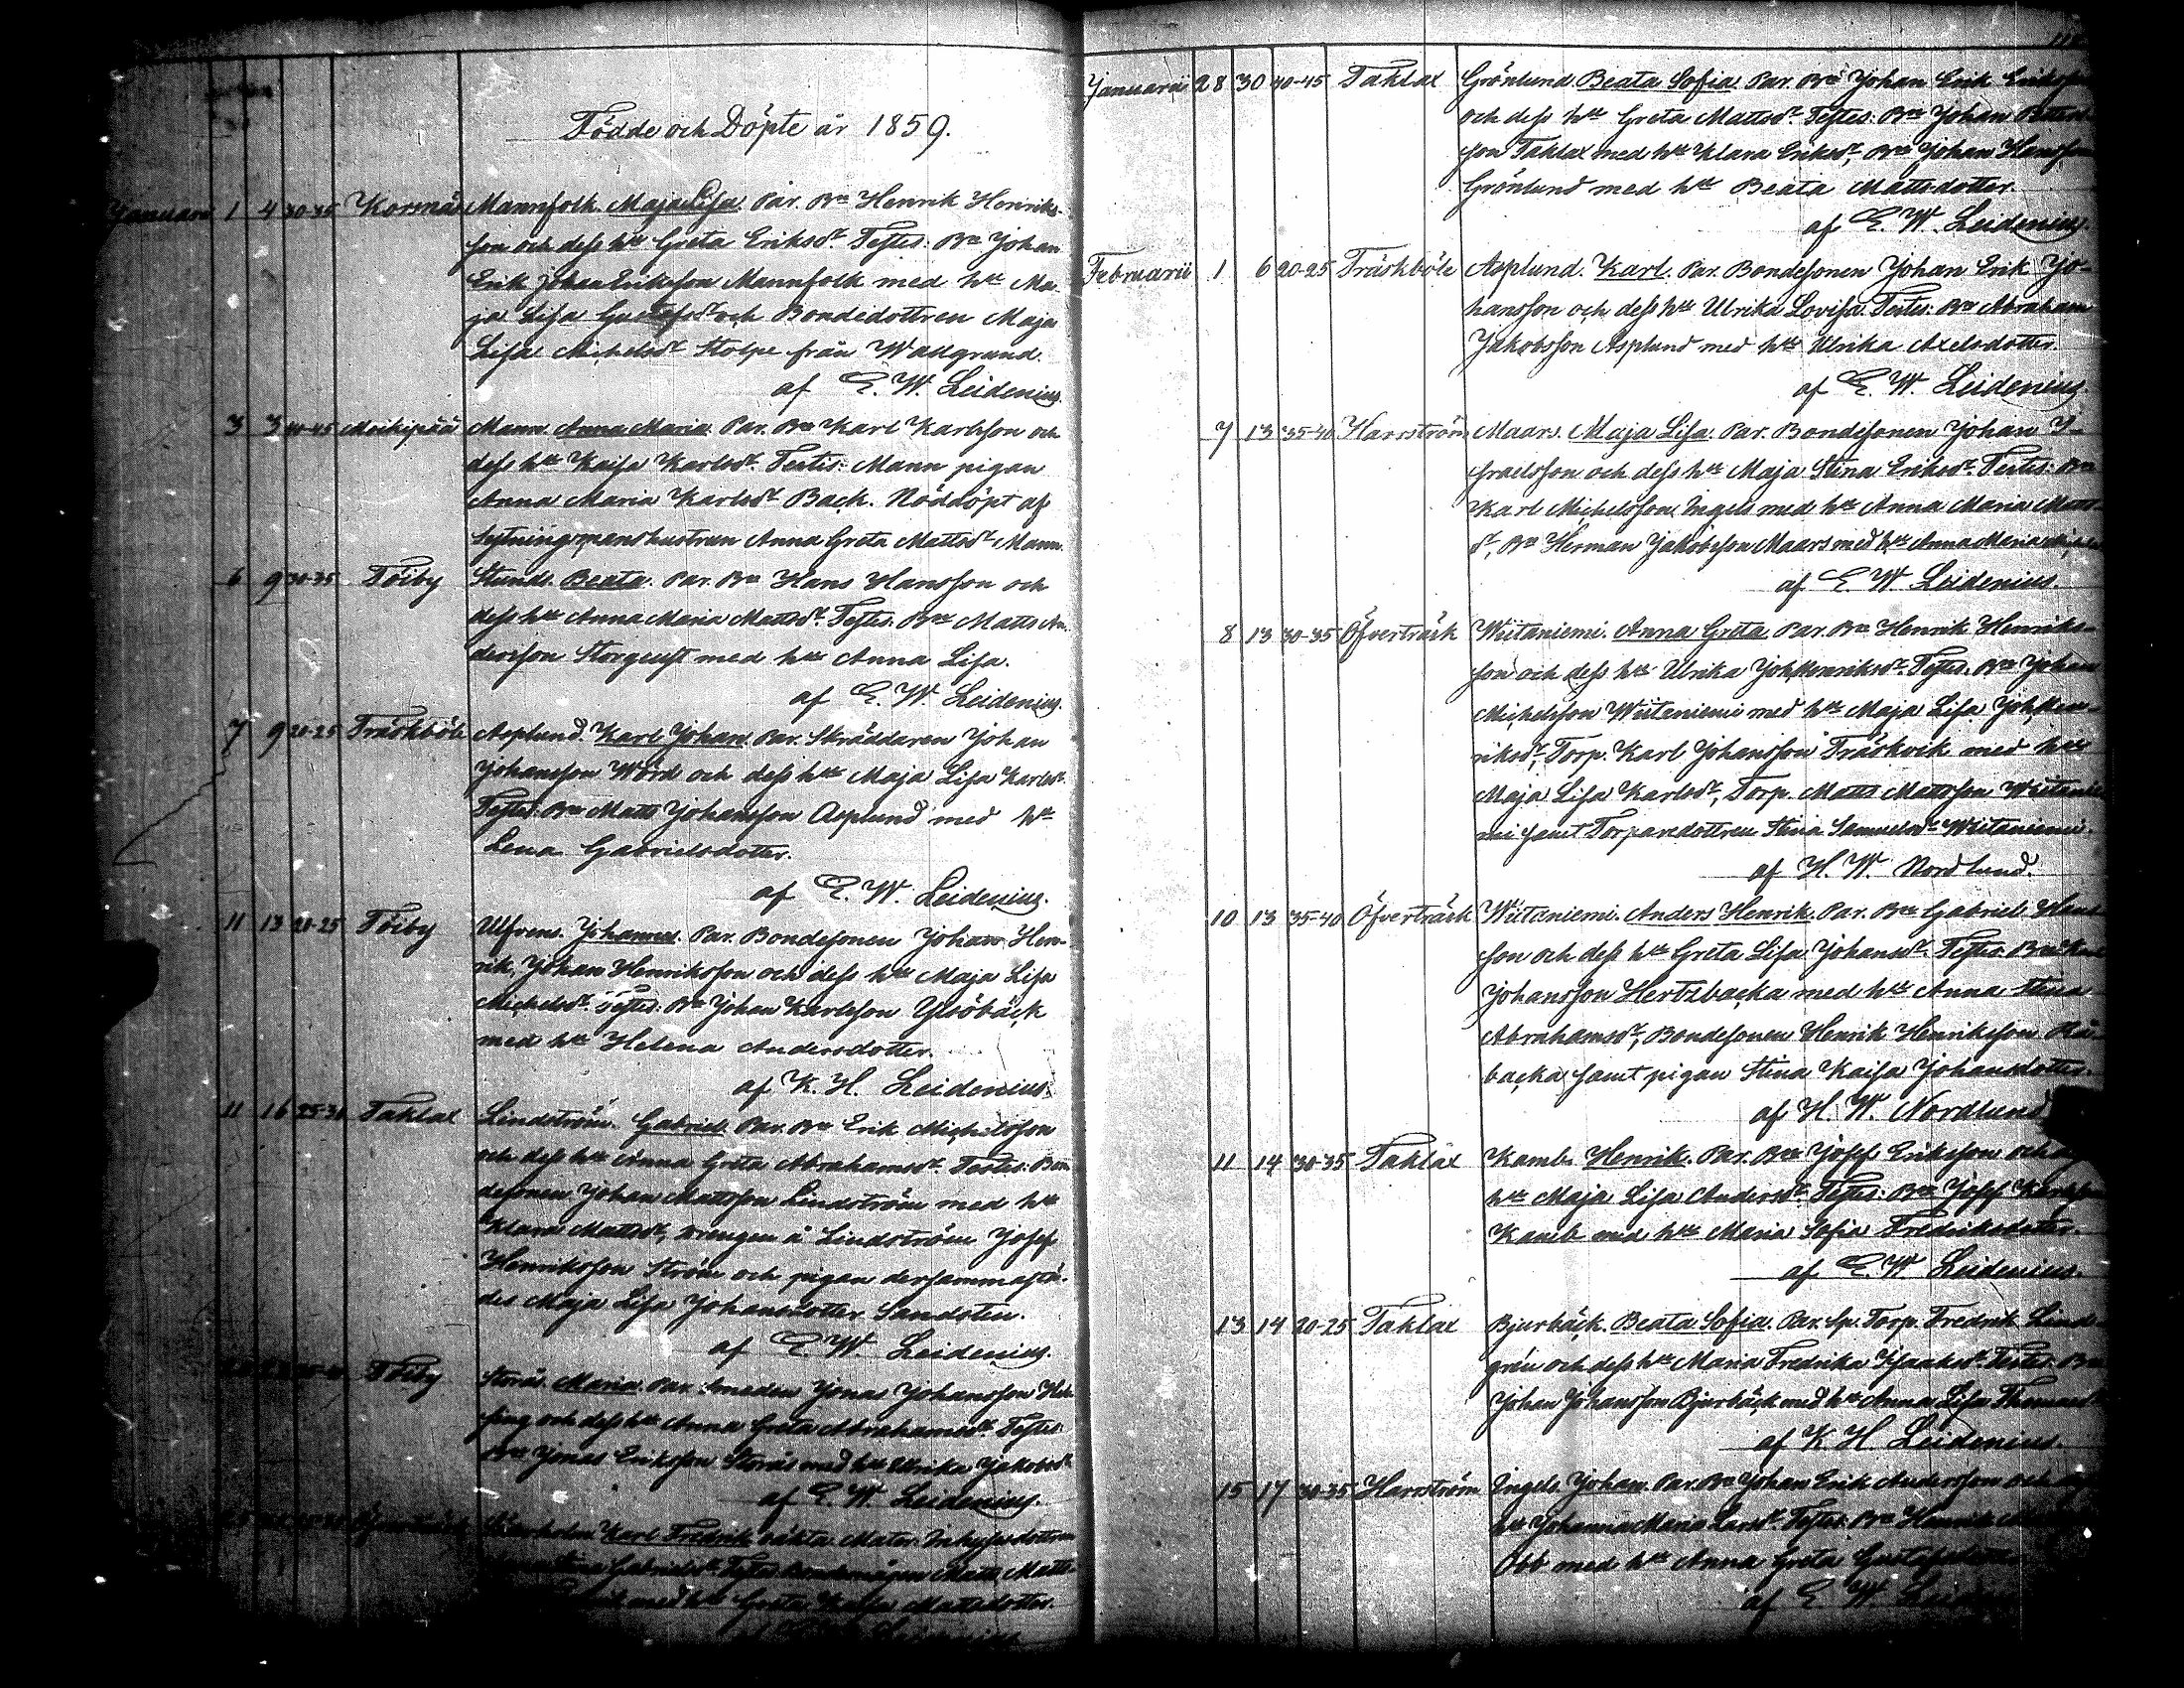 Födde och Döpte år 1859.
Januari 1 4 30-35 Korsnäs Mannfolk. Maja Lisa. Par. Bn Henrik Henriks-
son och dess hu Greta Eriksdr. Testes: Bn Johan
Erik Johan Eriksson Mannfolk med hu Ma-
ja Lisa Gustafsdr och Bondedottren Maja
Lisa Michelsdr Stolpe från Wallgrund.
af E. W. Leidenius.
3 3 40-45 Moikipää Mann. Anna Maria. Par. Bn Karl Karlsson och
dess hu Kaisa Karlsdr. Testis: Mann pigan
Anna Maria Karlsdr Back. Nöddöpt af
Lytningsmanshustrun Anna Greta Mattsdr Mann.
6 9 30-35 Töiby Stund. Beata. Par. Bn Hans Hansson och
dess hu Anna Maria Mattsdr. Testes. Bn Matts An-
dersson Storgeust med hu Anna Lisa.
af E. W. Leidenius.
7 9 20-25 Träskböle Asplund. Karl Johan. Par. Skräddaren Johan
Johansson Wörd och dess hu Maja Lisa Karlsdr.
Testes: Bn Matts Johansson Asplund med hu
Lena Gabrielsdotter.
af E. W. Leidenius.
11 13 20-25 Töiby Ulfvens. Johannes. Par. Bondesonen Johan Hen-
rik, Johan Henriksson och dess hu Maja Lisa
Michelsdr. Testes: Bn Johan Karlsson
med hu Helena Andersdotter.
af K. H. Leidenius.
11 16 25-30 Taklax Lindström. Gabriel. Par. Bn Erik Michelsson
och dess hu Anna Greta Abrahamsdr. Testes: Bon-
desonen Johan Mattsson Lindström med hu
Klara Mattsdr, drengen å Lindström Josef
Henriksson Ström och pigan dersammastä-
des Maja Lisa Johansdotter Sandsten.
af E. W. Leidenius.
Töiby Storås. Maria. Par. Smeden Jonas Johansson Hel-
sing och dess hu Anna Greta Abrahamsdr. Testes:
Bn Jonas Eriksson Storås med hu Ulrika Jakobsdr
af E. W. Leidenius.
Karl Fredrik oäkta. Mater. Inhysesdottren
Gabrielsdr. Testes. Matts Matts-
med hu Greta Kaisa Mattsdotter.
Januarii 28 30 40-45 Taklax Grönlund. Beata Sofia. Par. Bn Johan Erik Eriksson
och dess hu Greta Mattsdr. Testes: Bn Johan
son Taklax med hu Klara Eriksdr, Bn Johan Hansson
Grönlund med hu Beata Mattsdotter.
af E. W. Leidenius.
Februarii 1 6 20-25 Träskböle Asplund. Karl. Par. Bondesonen Johan Erik Jo-
hansson och dess hu Ulrika Lovisa. Testes: Bn Abraham
Jakobsson Asplund med hu Ulrika Axelsdotter.
af E. W. Leidenius.
7 13 35-40 Harrström Maars. Maja Lisa. Par. Bondesonen Johan I-
sraelsson och dess hu Maja Stina Eriksdr. Testes: Bn
Karl Michelsson Ingels med hu Anna Maria Matts-
dr, Bn Herman Jakobsson Maars med hu Anna Maria
af E. W. Leidenius.
8 13 30-35 Öfverträsk Wiitaniemi. Anna Greta. Par. Bn Henrik Henriks-
son och dess hu Ulrika Joh.Henriksdr. Testes. Bn Johan
Michelsson Wiitaniemi med hu Maja Lisa Joh.Hen-
riksdr, Torp. Karl Johansson Träskvik med hu
Maja Lisa Karlsdr, Torp. Matts Mattsson Wiitanie-
mi samt Torparedottren Stina Samuelsdr Wiitaniemi.
af H. W. Nordlund.
10 13 35-40 Öfverträsk Wiitaniemi. Anders Henrik. Par. Bn Gabriel Hans-
son och dess hu Greta Lisa Johansdr. Testes: Bn
Johansson Hertzbacka med hu Anna Stina
Abrahamsdr, Bondesonen Henrik Henriksson
backa samt pigan Stina Kaisa Johansdotter.
af H. W. Nordlund
11 14 30-35 Taklax Kamb. Henrik. Par. Bn Josef Eriksson och
hu Maja Lisa Andersdr. Testes: Bn Josef Karlsson
Kamb med hu Maria Sofia Fredriksdotter.
af E. W. Leidenius.
13 14 20-25 Taklax Bjurbäck. Beata Sofia. Par. Sp. Torp. Fredrik Lind-
grén och dess hu Maria Fredrika Isaaksdr. Testes: Bn
Johan Johansson Bjurbäck med hu Anna Lisa Thomasdr
af K. H. Leidenius.
15 17 30-35 Harrström Ingels. Johan. Par. Bn Johan Erik Andersson och
hu Johanna Maria Larsdr. Testes: Bn Henrik
Obb med hu Anna Greta Gustafsdotter
af E. W. Leidenius